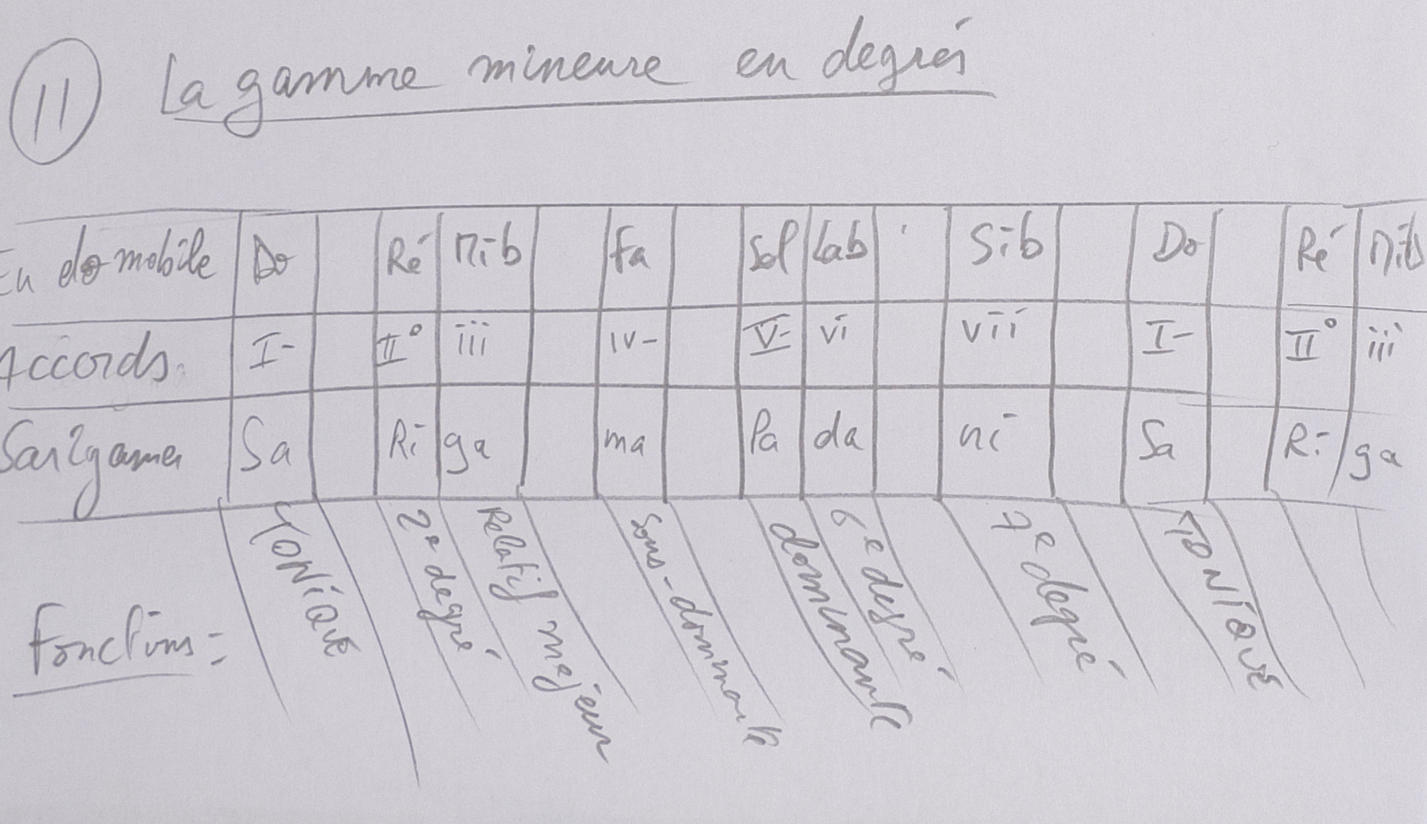 11 La gamme mineure en degrés
En do mobile Do Ré Mib Fa Sol Lab Sib Do Ré Mib
Accords. I- II° iii IV- V- vi vii I- II° iii
Sargamer Sa Ri ga ma Pa da ni Sa Ri ga
Fonctions: TONIQUE 2e degré Relatif majeur Sous-dominante dominante 6e degré 7e degré TONIQUE